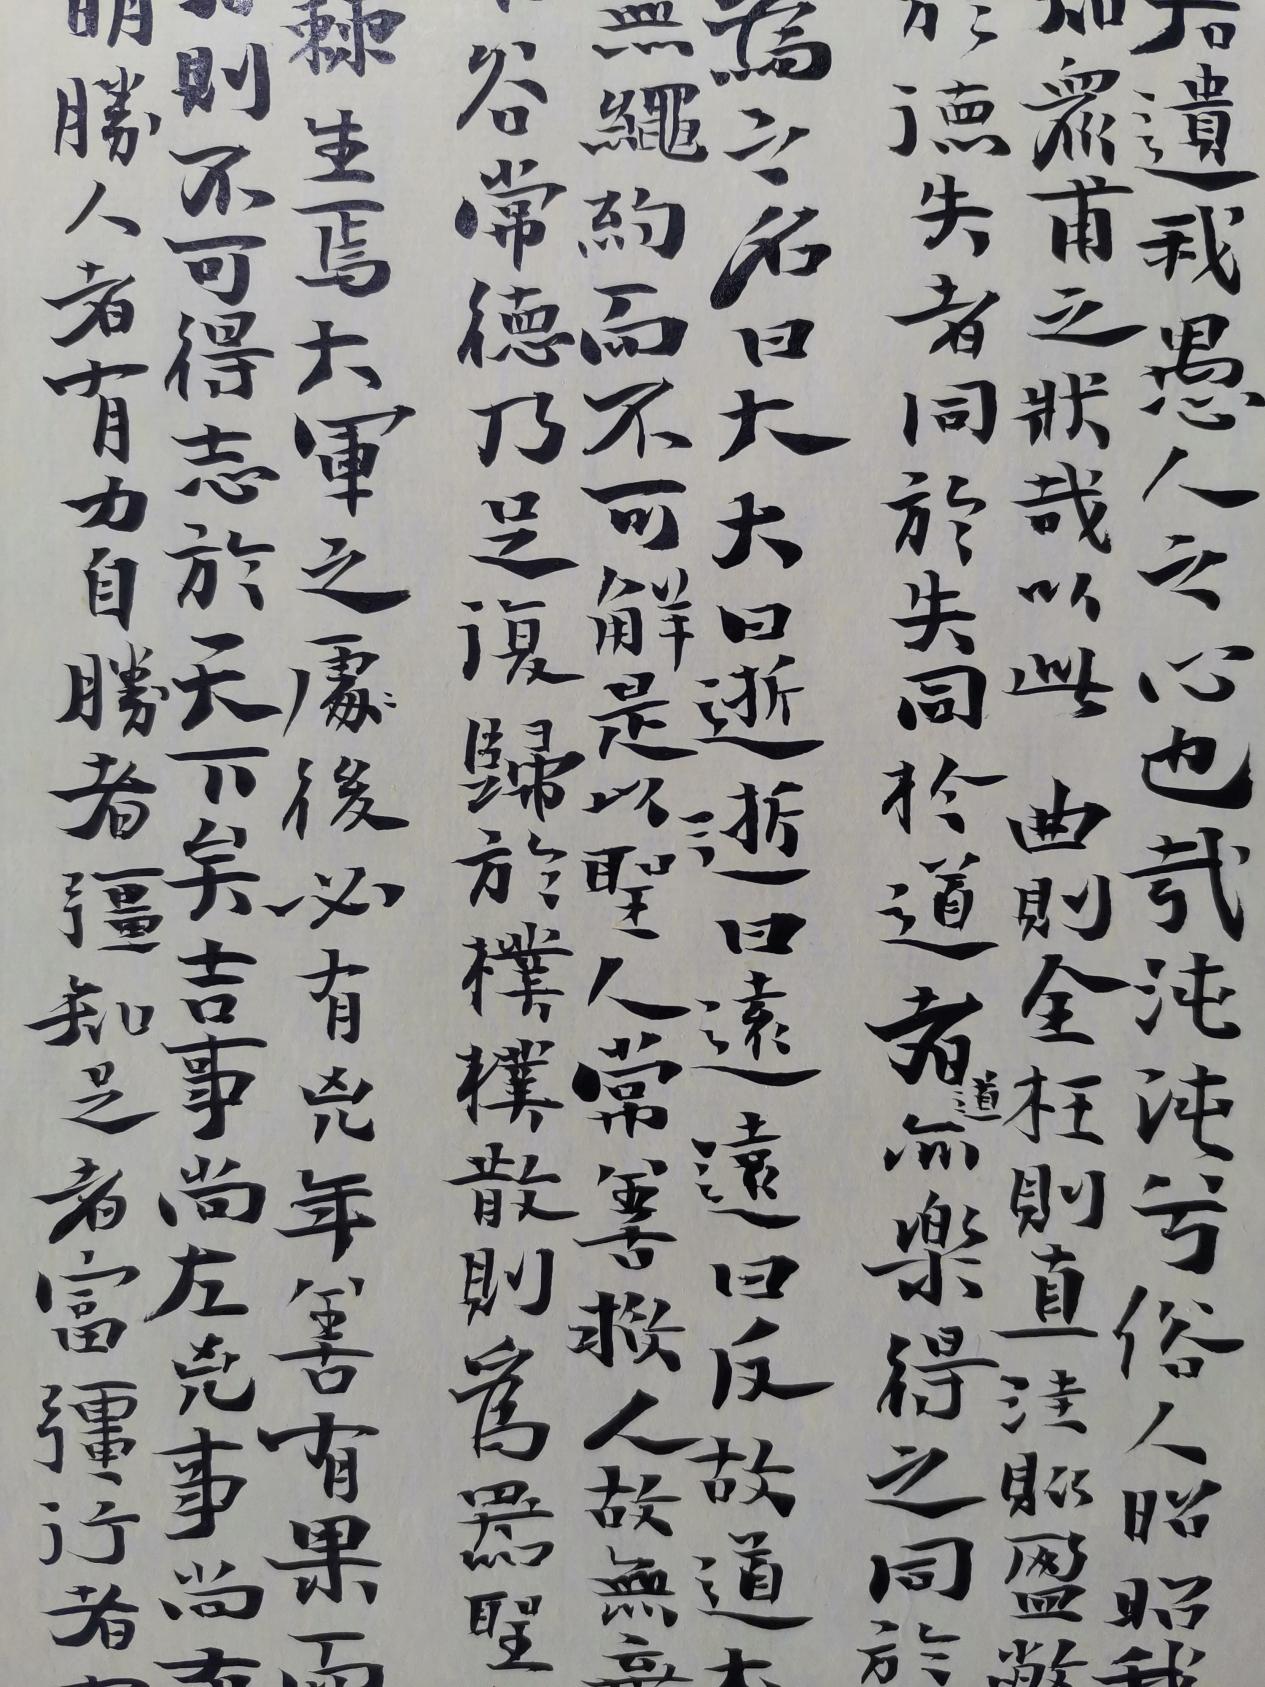 若遺我愚人之心也哉沌沌兮俗人昭昭我
知眾甫之狀哉以此　曲則全枉則直洼則盈敝
於德失者同於失同於道者道亦樂得之同於
為之名曰大大曰逝逝曰遠遠曰反故道大
無繩約而不可解是以聖人常善救人故無棄
谷常德乃足復歸於樸樸散則為器聖
棘生焉大軍之處後必有凶年善有果而
則不可得志於天下矣吉事尚左凶事尚右
明勝人者有力自勝者彊知足者富彊行者有